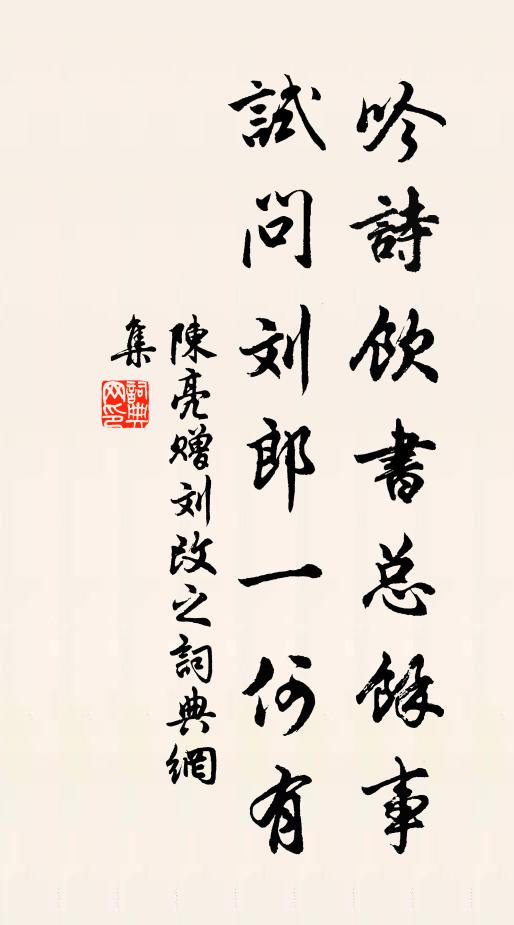 吟詩飲書总餘事
試问刘郎一何有
陳亮赠刘改之詞典網
集
詞典網印